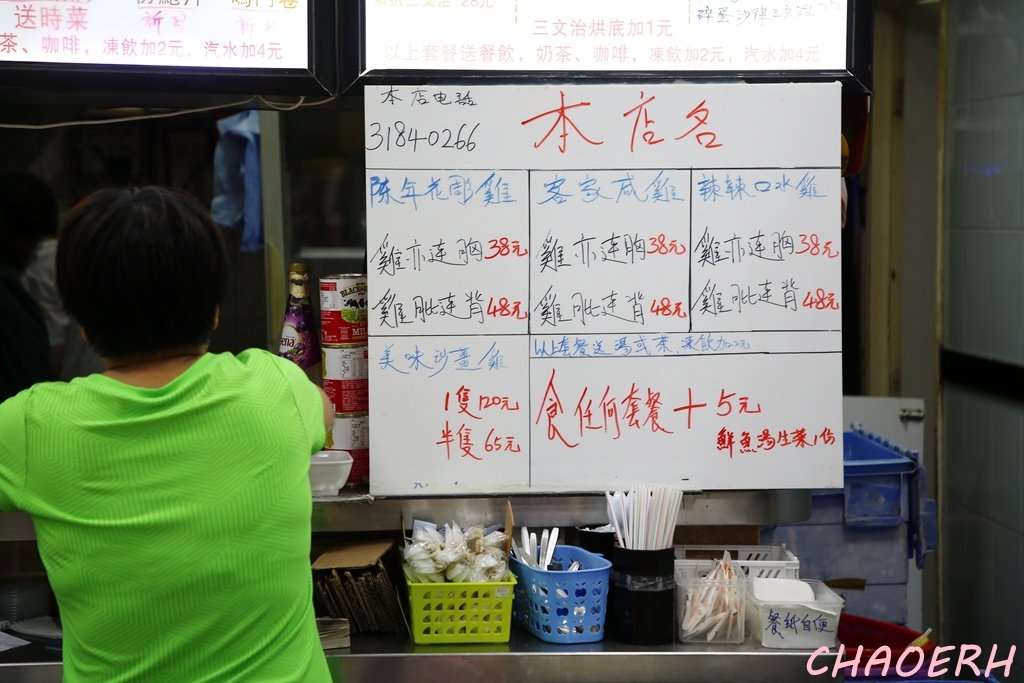 送時菜
茶、咖啡，凍飲加2元，汽水加4元
三文治烘底加1元
以上套餐送餐飲，奶茶、咖啡，凍飲加2元，汽水加4元
本店电話
31840266
本店名
陳年花彫雞
雞亦連胸38元
雞肶連背48元
客家咸雞
雞亦連胸38元
雞肶連背48元
辣辣口水雞
雞亦連胸38元
雞肶連背48元
美味沙薑雞
1隻120元
半隻65元
以上套餐送湯或茶，凍飲加2元
食任何套餐+5元
鮮魚湯生菜1份
餐紙自便
CHAOERH